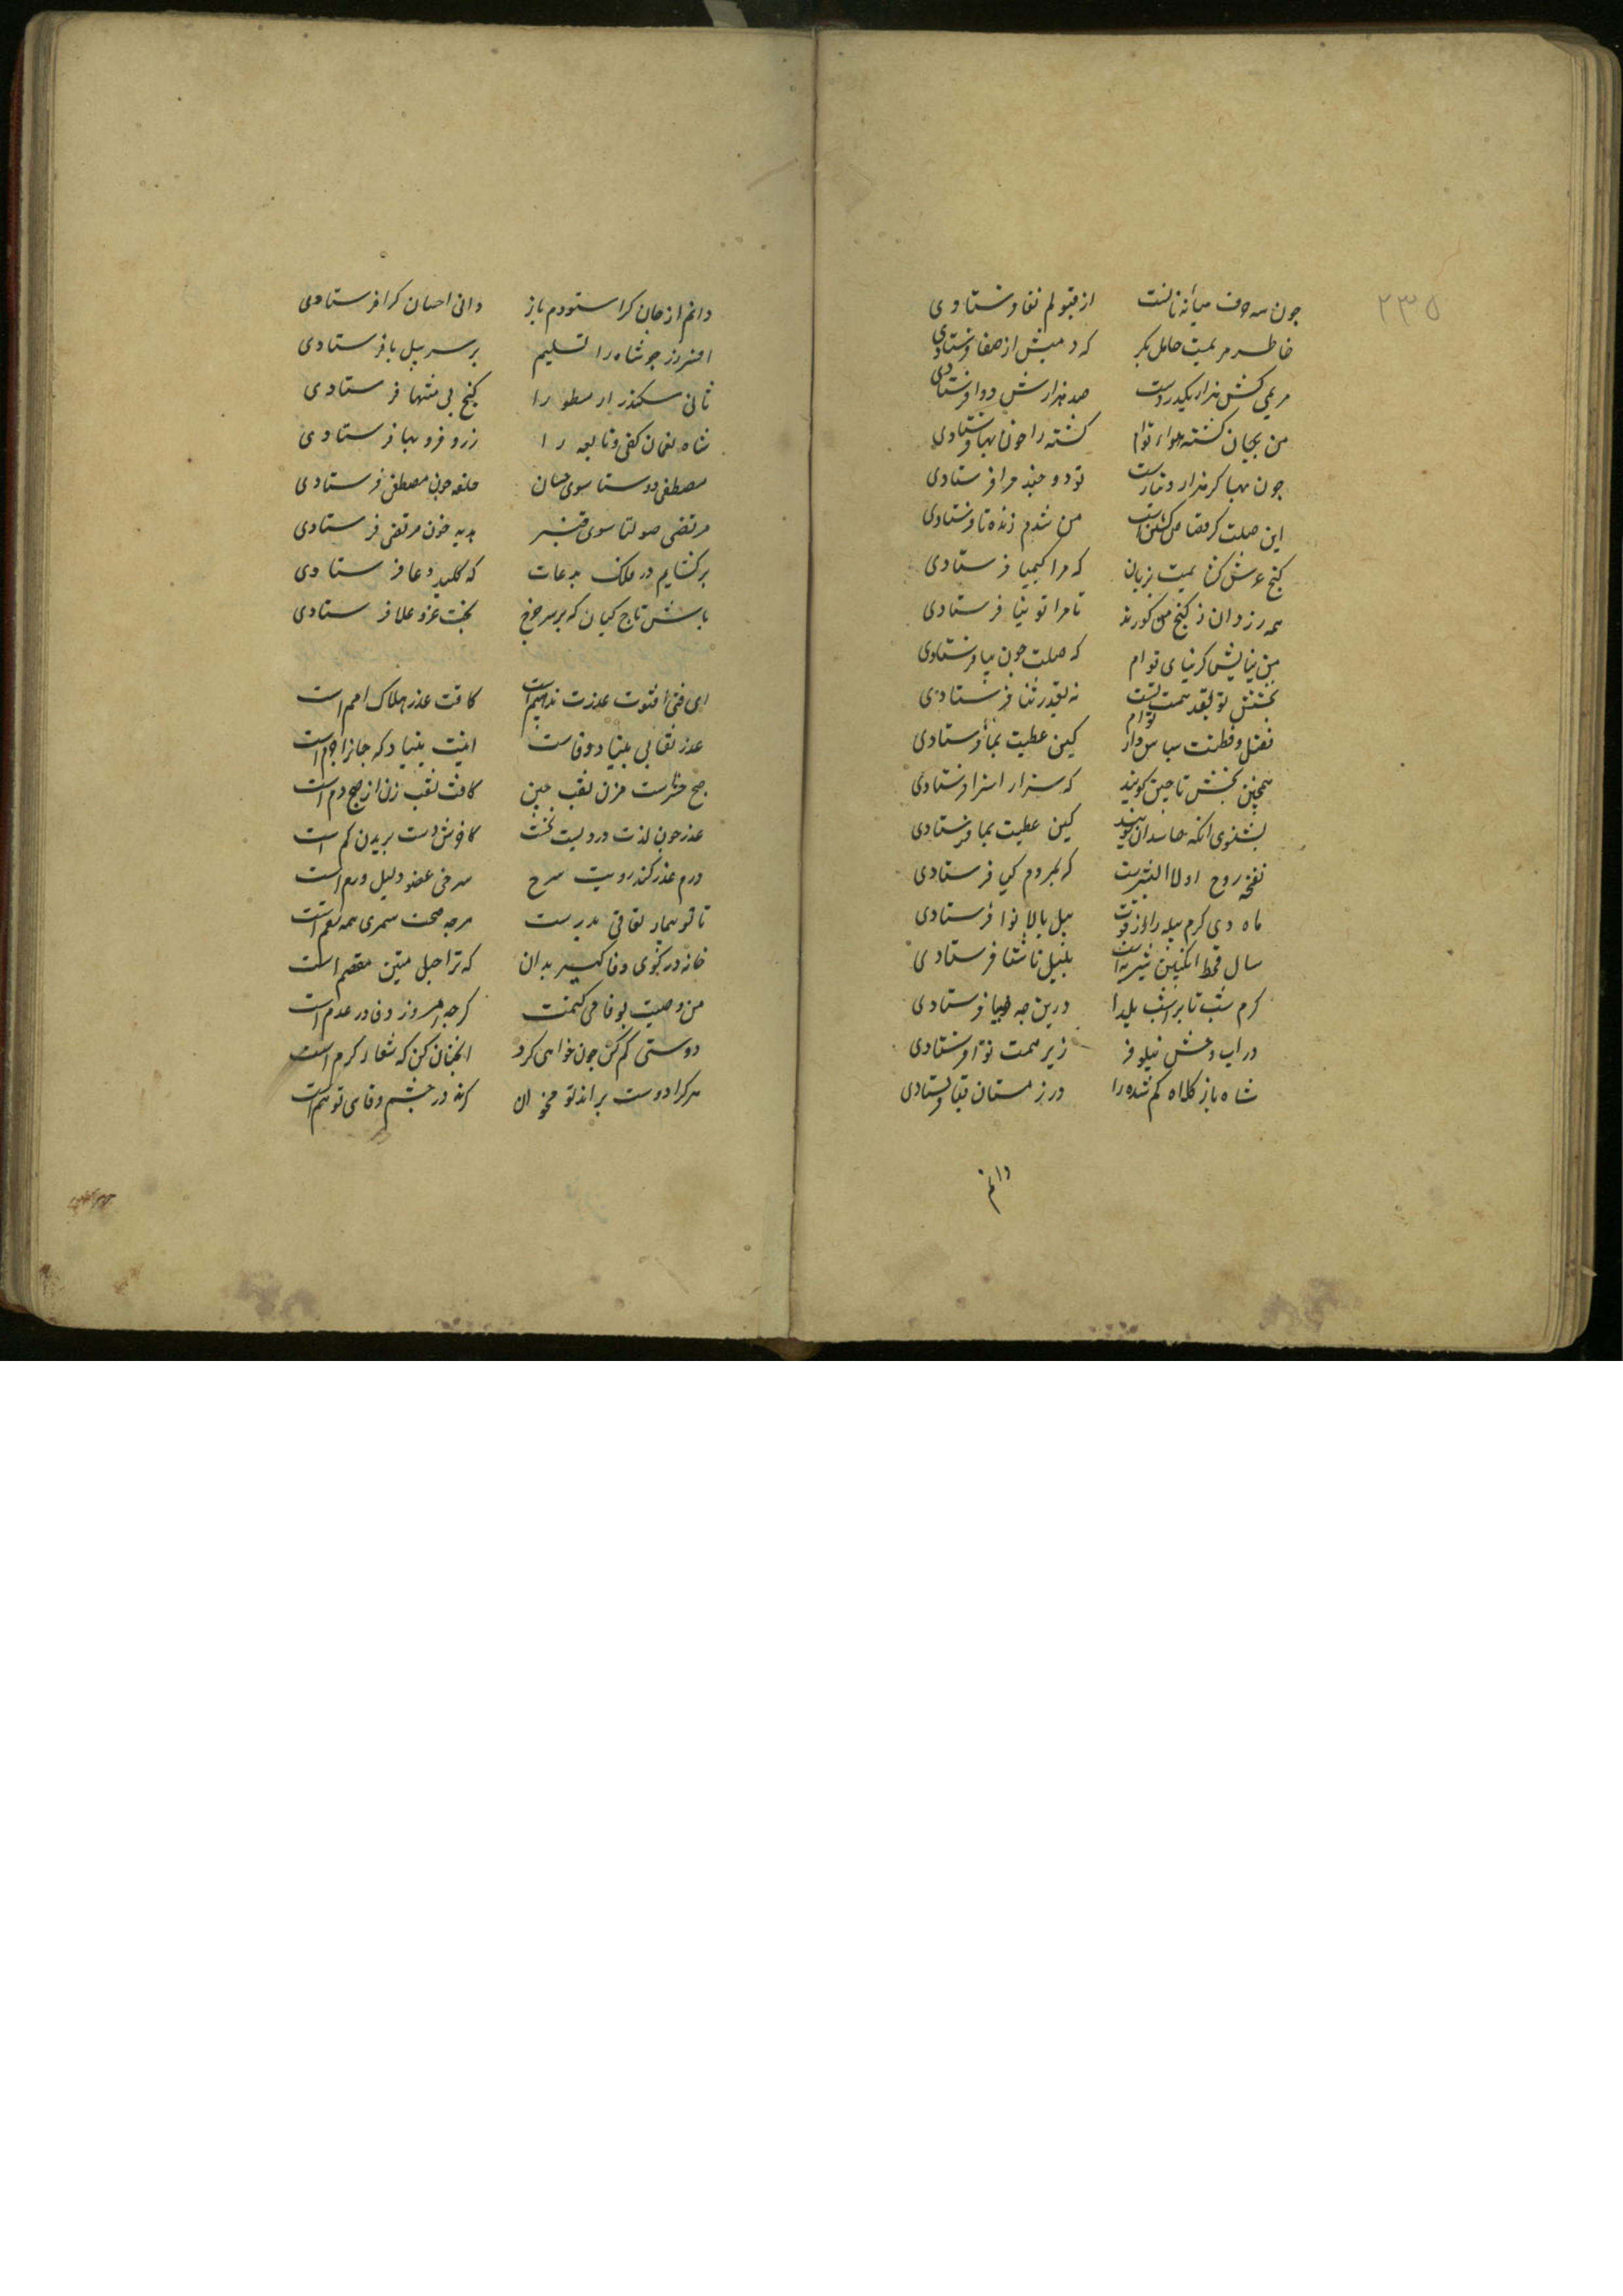 ۲۳۵
چون سه حرف میانه نالت از قبولم نفا فرستادی
خاطر مریمیت حامل بکر که دمیش از صفا فرستادی
مریمی کش هزار یکدردست صد هزارش دوا فرستادی
من بجان کشته هواء توام کشته را خون بها فرستادی
چون بها کر هزار دینارست تو دو چند مرا فرستادی
این صلت کر قصاص کشتن راست من شدم زنده تا فرستادی
کنج عرش کشایمیت بزبان که مرا کیمیا فرستادی
همه رزدان ز کنج من کورند تا مرا تو نیا فرستادی
بین نیایش کر نیای توام که صلت چون نیا فرستادی
بخشش تو بقدر همت تست نه بقدر ثنا فرستادی
فضل و فطنت سپاس دار توام کین عطیت بما فرستادی
همچنین بخشش تا حین کویند که سزار اسزا فرستادی
بشنوی انکه حاسدان کویند کین عطیت بما فرستادی
نفخه روح اولا البشرست که بمردم کیا فرستادی
ماه دی کرم پیله را از قوت پیل بالا نوا فرستادی
سال قحط انکبین شیرست بلبیل تا شفا فرستادی
کرم شب تاب را شب یلدا درین چه ضیا فرستادی
در اب و خش نیلوفر زیر همت نوا فرستادی
شاه باز کلاه کم شده را در زمستان قبا فرستادی
دانم
دانم از جان کرا ستودم باز دانی احسان کرا فرستادی
افسر زر چو شاه را تسلیم بر سر پیل با فرستادی
ثانی سکندر ارسطو را کنج بی منتها فرستادی
شاه نعمان کفی و نابغه را زر و فر و بها فرستادی
مصطفی دوستا سوی حسان خلعه چون مصطفی فرستادی
مرتضی صولتا سوی قنبر هدیه چون مرتضی فرستادی
برکشایم در ملک بدعات که کلید دعا فرستادی
باش تاج کیان که بر سر چرخ بخت عز و علا فرستادی
ای فتی افتوت عذرت ندهیم است کافت عذر هلاک امم است
عذر نقابی بنیاد وفاست اینت بنیاد که جانرا وم است
صبح حشرست مزن نقب چنین کافت نقب زن از صبح دم است
عذر چون لذت دردیست نخست کاخرش دست بریدن کم است
درم عذر کند رویت سرخ سرخی عضو دلیل ورم است
تا تو بیمار نفاقی بدرست هرچه صحت شمری همه سقم است
خانه در کوی وفا کیر بدان که ترا حبل متین معتصم است
من وصیت بوفا می کنمت کر چه امروز وفا در عدم است
دوستی کم کن چون خواهی کرد انچنان کن که شعار کرم است
هر کرا دوست براند تو مخوان کرنه در چشم وفای تو نم است